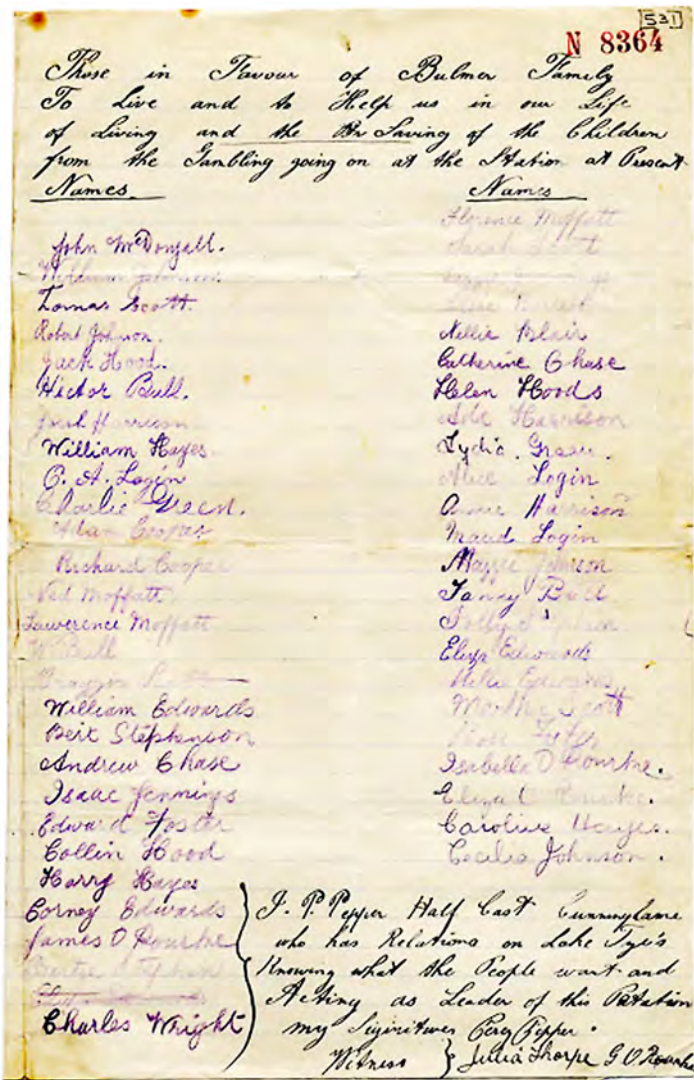 531
N 8364
Those in Favour of Bulmer Family
To Live and to Help us in our Life
of Living and the Saving of the Children
from the Gambling going on at the Station at Present
Names
John McDougall.
William Johnson
Tomas Scott.
Robert Johnson.
Jack Hood.
Hector Bull.
Harrison
William Hayes.
C. A. Login
Charlie Green.
Alan Cooper
Richard Cooper
Ned Moffatt
Lawerence Moffatt
W Bull
Scott
William Edwards
Bert Stephenson
Andrew Chase
Isaac Jennings
Edward Foster
Collin Hood
Harry Hayes
Corney Edwards
James O Rourke
Charles Wright
Names
Florence Moffatt
Sarah Scott
Nellie Blair
Catherine Chase
Helen Hoods
Harrison
Lydia. Green.
Alice Login
Annie Harrison
Maud Login
Maggie Johnson
Fanny Bull
Eliza Edwards
Edwards
Martha Scott
Isabella O Rourke.
Eliza O Rourke.
Caroline Hayes.
Cecilia Johnson.
I. P. Pepper Half Cast Cunninghame
who has Relations on Lake Tye's
Knowing what the People want and
Acting as Leader of this Patation
my Siginitures Percy Pepper.
Witness } Julia Thorpe G O Rourke